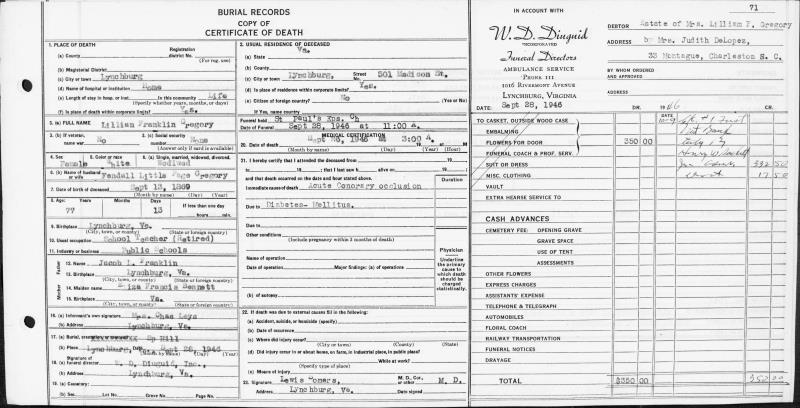 BURIAL RECORDS
COPY OF
CERTIFICATE OF DEATH
1. PLACE OF DEATH
Registration
(a) County district No. (For reg. use)
(b) Magisterial District
(c) City or town Lynchburg
(d) Name of hospital or institution Home
(e) Length of stay, in hosp. or inst. In this community Life
(Specify whether years, months, or days)
(f) Is place of death within corporate limits? Yes.
2. USUAL RESIDENCE OF DECEASED
(a) State Va.
(b) County
(c) City or town Lynchburg, Street No. 501 Madison St.
(d) Is place of residence within corporate limits? Yes.
(e) Citizen of foreign country? No
If Yes, name country
3. (a) FULL NAME Lillian Franklin Gregory
3. (b) If veteran, name war No 3. (c) Social security No. None
(Answer only if card is available)
4. Sex Female 5. Color or race White 6. (a) Single, married, widowed, divorced. Widowed
6. (b) Name of husband or wife Yendell Little Page Gregory
7. Date of birth of deceased Sept 13, 1869
(Month by name) (Day) (Year)
8. Age: Years 77 Months Days 13 If less than one day hours minutes
9. Birthplace Lynchburg, Va.
(City, town, or county) (State or foreign country)
10. Usual occupation School Teacher (Retired)
11. Industry or business Public Schools
Father 12. Name Jacob L. Franklin
13. Birthplace Lynchburg, Va.
(City, town, or county) (State or foreign country)
Mother 14. Maiden name Eliza Francis Bennett
15. Birthplace Va.
(City, town, or county) (State or foreign country)
16. (a) Informant's own signature Mrs. Chas Leys
(b) Address Lynchburg, Va.
17. (a) Burial, Sp Hill
(b) Place Lynchburg, Date Sept 28, 1946
(Month by Name) (Day) (Year)
18. (a) Signature of funeral director W. D. Diuguid, Inc.,
(b) Address Lynchburg, Va.
19. (a) Cemetery:
(b) Sec. Lot No. Grave No. Space No.
Funeral held St Paul's Eps. Ch
Date of Funeral Sept 28, 1946 at 11:00 A. M.
MEDICAL CERTIFICATION
20. Date of death Sept 26, 1946 at 3:00 A. M.
(Month by name) (Day) (Year) (Hour)
21. I hereby certify that I attended the deceased from
19 to 19 ; that I last saw h alive on 19
and that death occurred on the date and hour stated above. Duration
Immediate cause of death Acute Conorary occlusion
Due to Diabetes- Mellitus.
Due to
Other conditions
(Include pregnancy within 3 months of death)
Name of operation
Date of operation Major findings: (a) of operation
(b) of autopsy
Physician
Underline the primary cause to which death should be charged statistically.
22. If death was due to external causes fill in the following:
(a) Accident, suicide, or homicide (specify)
(b) Date of occurrence
(c) Where did injury occur?
(City or town) (County) (State)
(d) Did injury occur in or about home, on farm, in industrial place, in public place?
While at work?
(Specify type of place)
(e) Means of injury
23. Signature Lewis M. D., Cor., or other M. D.
Address Lynchburg, Va. Date signed
71
IN ACCOUNT WITH
W. D. Diuguid
INCORPORATED
Funeral Directors
AMBULANCE SERVICE
PHONE 111
1016 RIVERMONT AVENUE
LYNCHBURG, VIRGINIA
DATE: Sept 28, 1946
DEBTOR Estate of Mrs. Lillian F. Gregory
ADDRESS by Mrs. Judith DeLopez,
33 Montague, Charleston S. C.
BY WHOM ORDERED AND APPROVED
ADDRESS
DR. 19 CR.
TO CASKET, OUTSIDE WOOD CASE
EMBALMING
FLOWERS FOR DOOR 350 00
FUNERAL COACH & PROF. SERV.
SUIT OR DRESS 332 50
MISC. CLOTHING 17 50
VAULT
EXTRA HEARSE SERVICE TO
CASH ADVANCES
CEMETERY FEE: OPENING GRAVE
GRAVE SPACE
USE OF TENT
ASSESSMENTS
OTHER FLOWERS
EXPRESS CHARGES
ASSISTANTS' EXPENSE
TELEPHONE & TELEGRAPH
AUTOMOBILES
FLORAL COACH
RAILWAY TRANSPORTATION
FUNERAL NOTICES
DRAYAGE
TOTAL $350 00 350 00